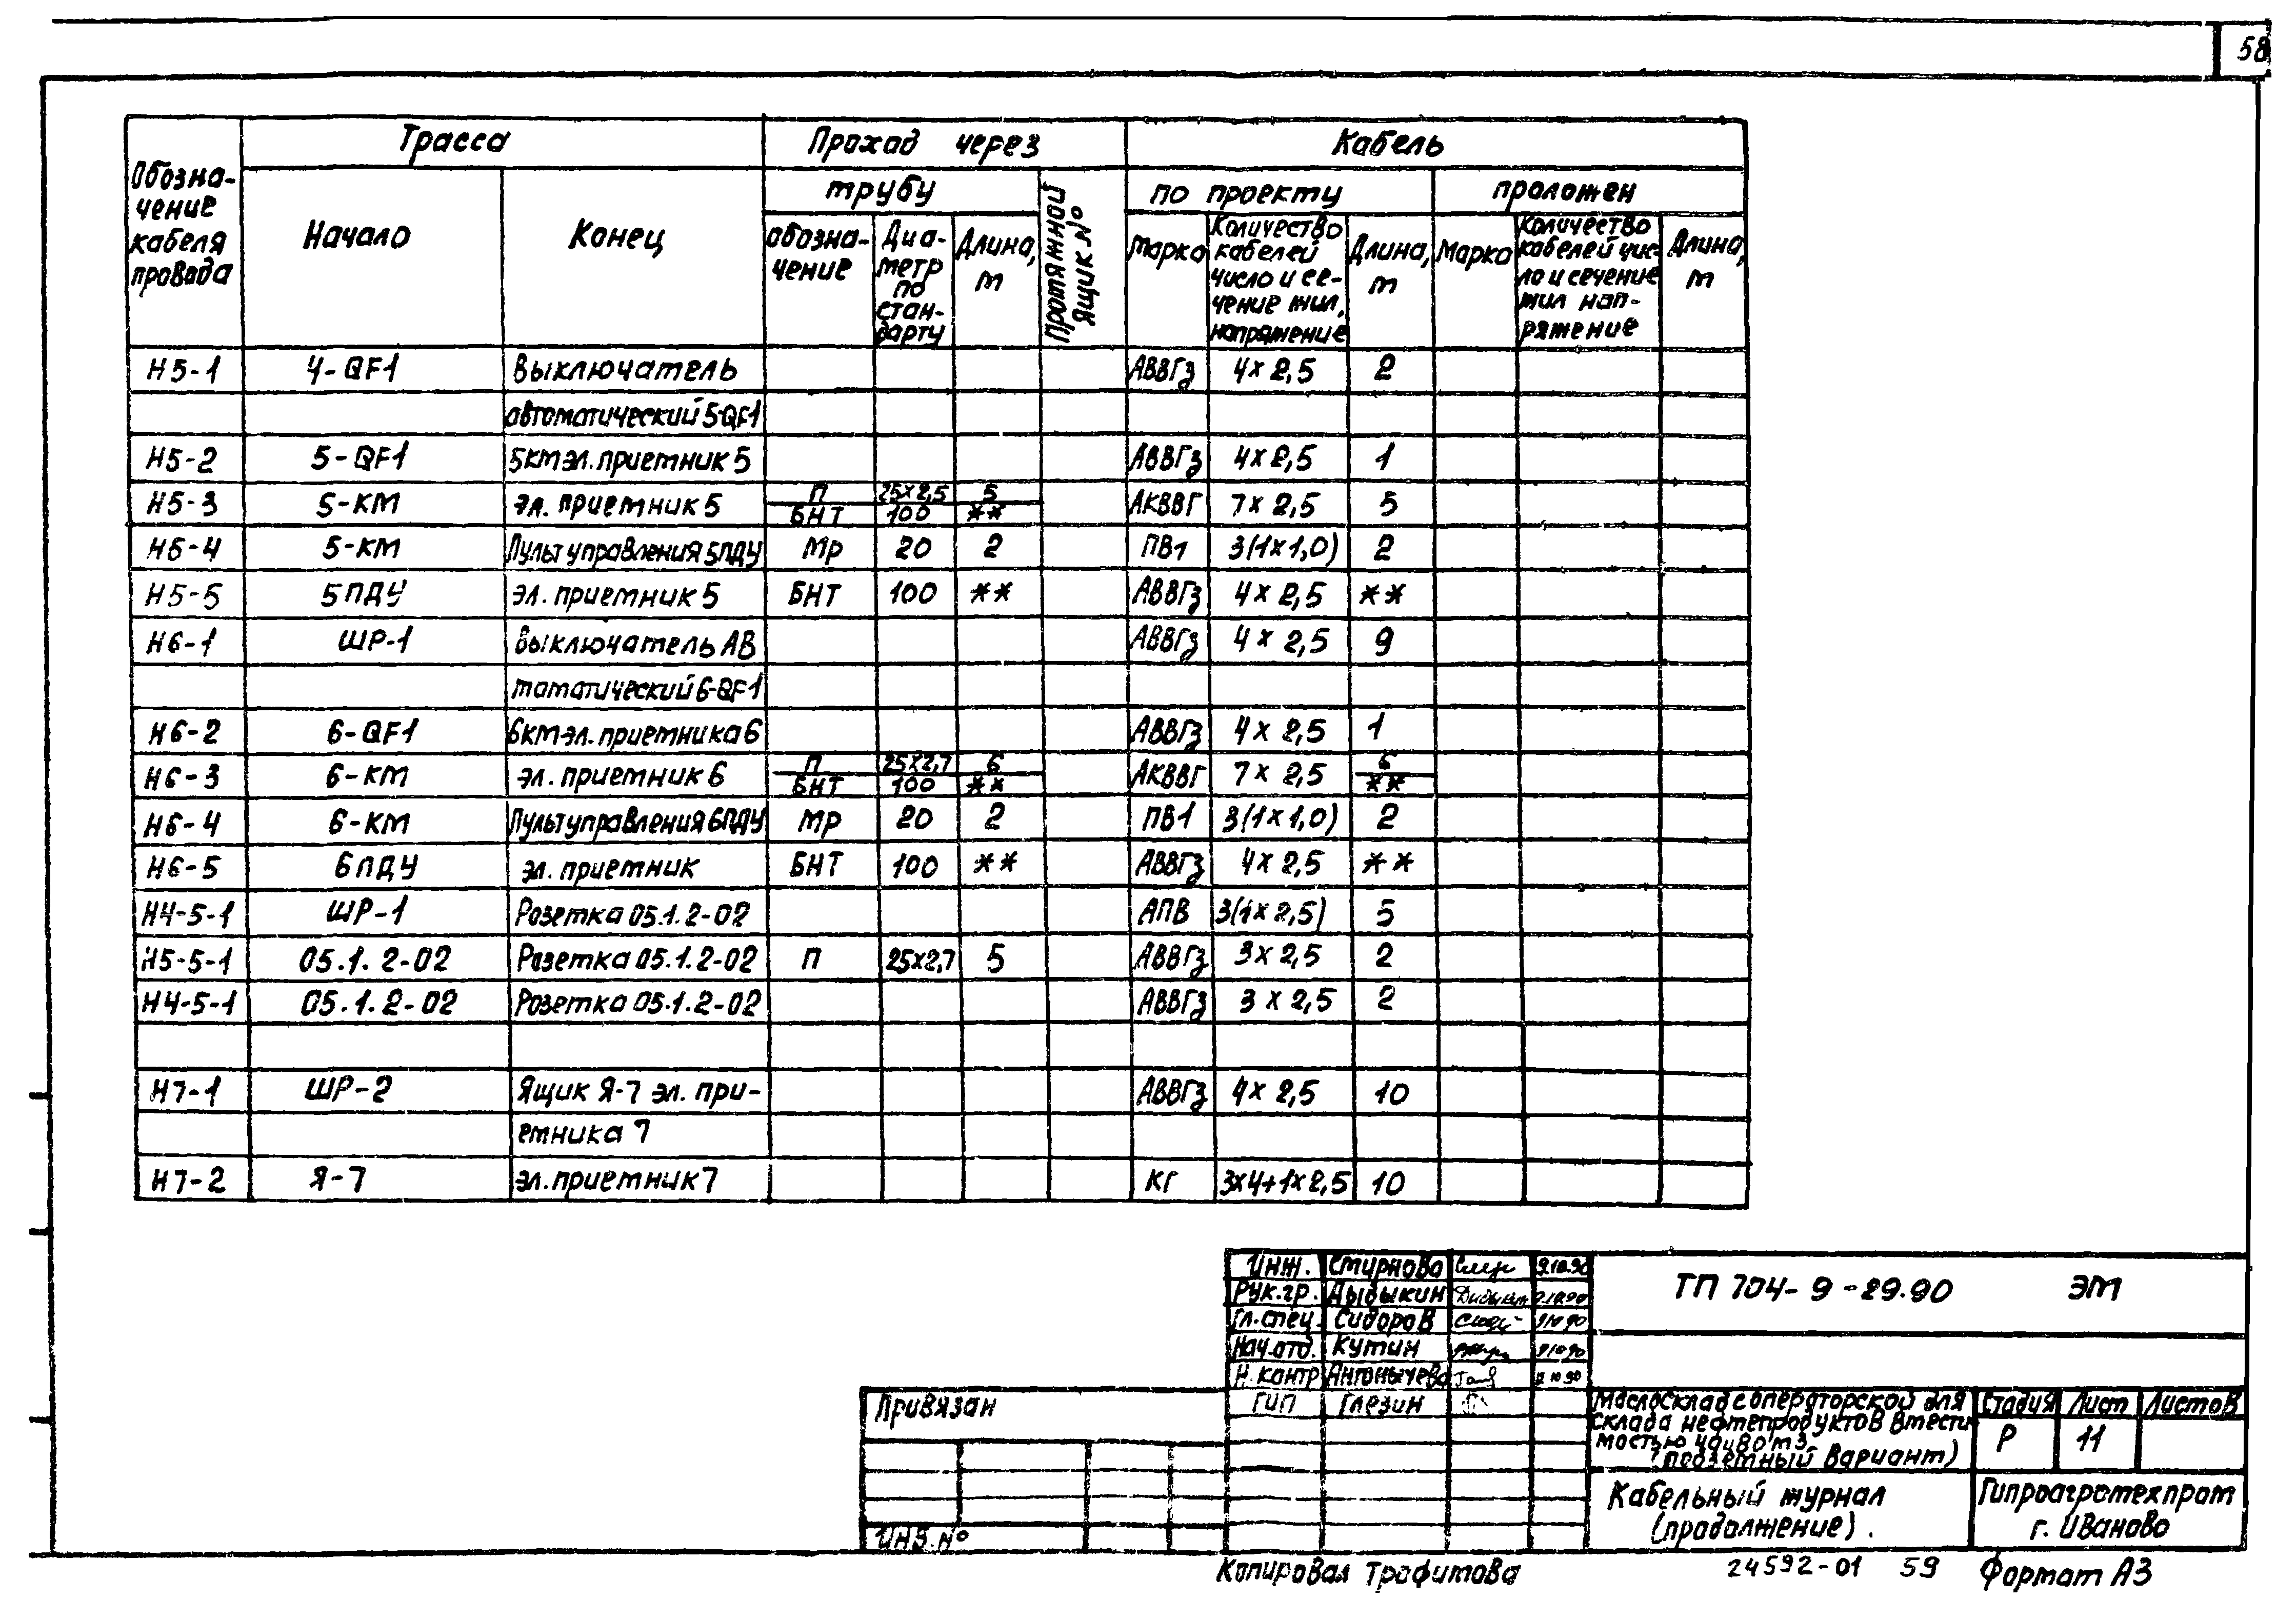 58
Обозна-
чение
кабеля
провода
Трасса
Начало
Конец
Проход через
трубу
обозна-
чение
Диа-
метр
по
стан-
дарту
Длина,
м
Протяжной
Ящик №
Кабель
по проекту
Марка
Количество
кабелей
число и се-
чение жил,
напряжение
Длина,
м
проложен
Марка
Количество
кабелей чис-
ло и сечение
жил нап-
ряжение
Длина,
м
Н5-1 4-QF1 Выключатель АВВГз 4×2,5 2
автоматический 5-QF1
Н5-2 5-QF1 5км эл. приемник 5 АВВГз 4×2,5 1
Н5-3 5-КМ эл. приемник 5 П 25×2,5 5 АКВВГ 7×2,5 5
БНТ 100 **
Н5-4 5-КМ Пульт управления 5ПДУ Мр 20 2 ПВ1 3(1×1,0) 2
Н5-5 5ПДУ эл. приемник 5 БНТ 100 ** АВВГз 4×2,5 **
Н6-1 ШР-1 Выключатель АВ АВВГз 4×2,5 9
томатический 6-QF1
Н6-2 6-QF1 6км эл. приемника 6 АВВГз 4×2,5 1
Н6-3 6-КМ эл. приемник 6 П 25×2,7 6 АКВВГ 7×2,5 6
БНТ 100 ** **
Н6-4 6-КМ Пульт управления 6ПДУ Мр 20 2 ПВ1 3(1×1,0) 2
Н6-5 6ПДУ эл. приемник БНТ 100 ** АВВГз 4×2,5 **
Н4-5-1 ШР-1 Розетка 05.1.2-02 АПВ 3(1×2,5) 5
Н5-5-1 05.1.2-02 Розетка 05.1.2-02 П 25×2,7 5 АВВГз 3×2,5 2
Н4-5-1 05.1.2-02 Розетка 05.1.2-02 АВВГз 3×2,5 2
Н7-1 ШР-2 Ящик Я-7 эл. при- АВВГз 4×2,5 10
емника 7
Н7-2 Я-7 эл. приемник 7 КГ 3×4+1×2,5 10
Инж. Смирнова 9.10.90
Рук.гр. Дыдыкин
Гл.спец. Сидоров 9.10.90
Нач.отд. Кутин 9.10.90
Н.контр Антонычева 10.90
ГИП Глезин
ТП 704-9-29.90 ЭМ
Маслосклад с операторской для
склада нефтепродуктов вмести
мостью 40 и 80 м3
(подземный вариант)
Стадия Лист Листов
Р 11
Кабельный журнал
(продолжение).
Гипроагротехпром
г. Иваново
Привязан
Инв.№
Копировал Трофимова
24592-01 59 Формат А3